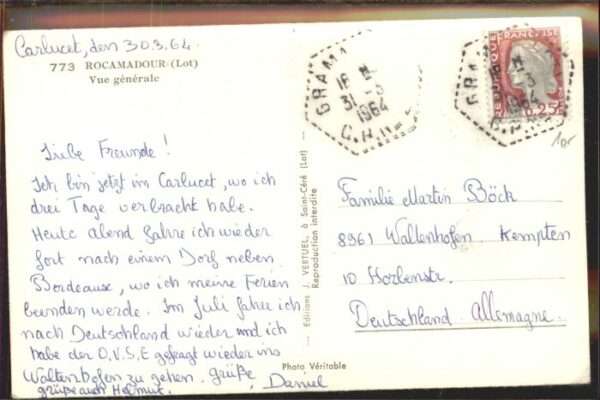 Carlucet, den 30.3.64
773 ROCAMADOUR (Lot)
Vue générale
Liebe Freunde !
Ich bin jetzt im Carlucet, wo ich
drei Tage verbracht habe.
Heute abend fahre ich wieder
fort nach einem Dorf neben
Bordeause, wo ich meine Ferien
beenden werde. Im Juli fahre ich
nach Deutschland wieder und ich
habe der O.V.S.E gefragt wieder ins
Waltenhofen zu gehen. grüße
grüße auch Helmut. , Daniel
Editions J. VERTUEL, à Saint-Céré (Lot)
Reproduction interdite
Photo Véritable
GRAMA
18 H
31 -3
1964
FRANÇAISE
0,25
GRAMA
18 H
-3
1964
Familie Martin Böck
8961 Waltenhofen Kempten
10 Horlenstr.
Deutschland Allemagne.